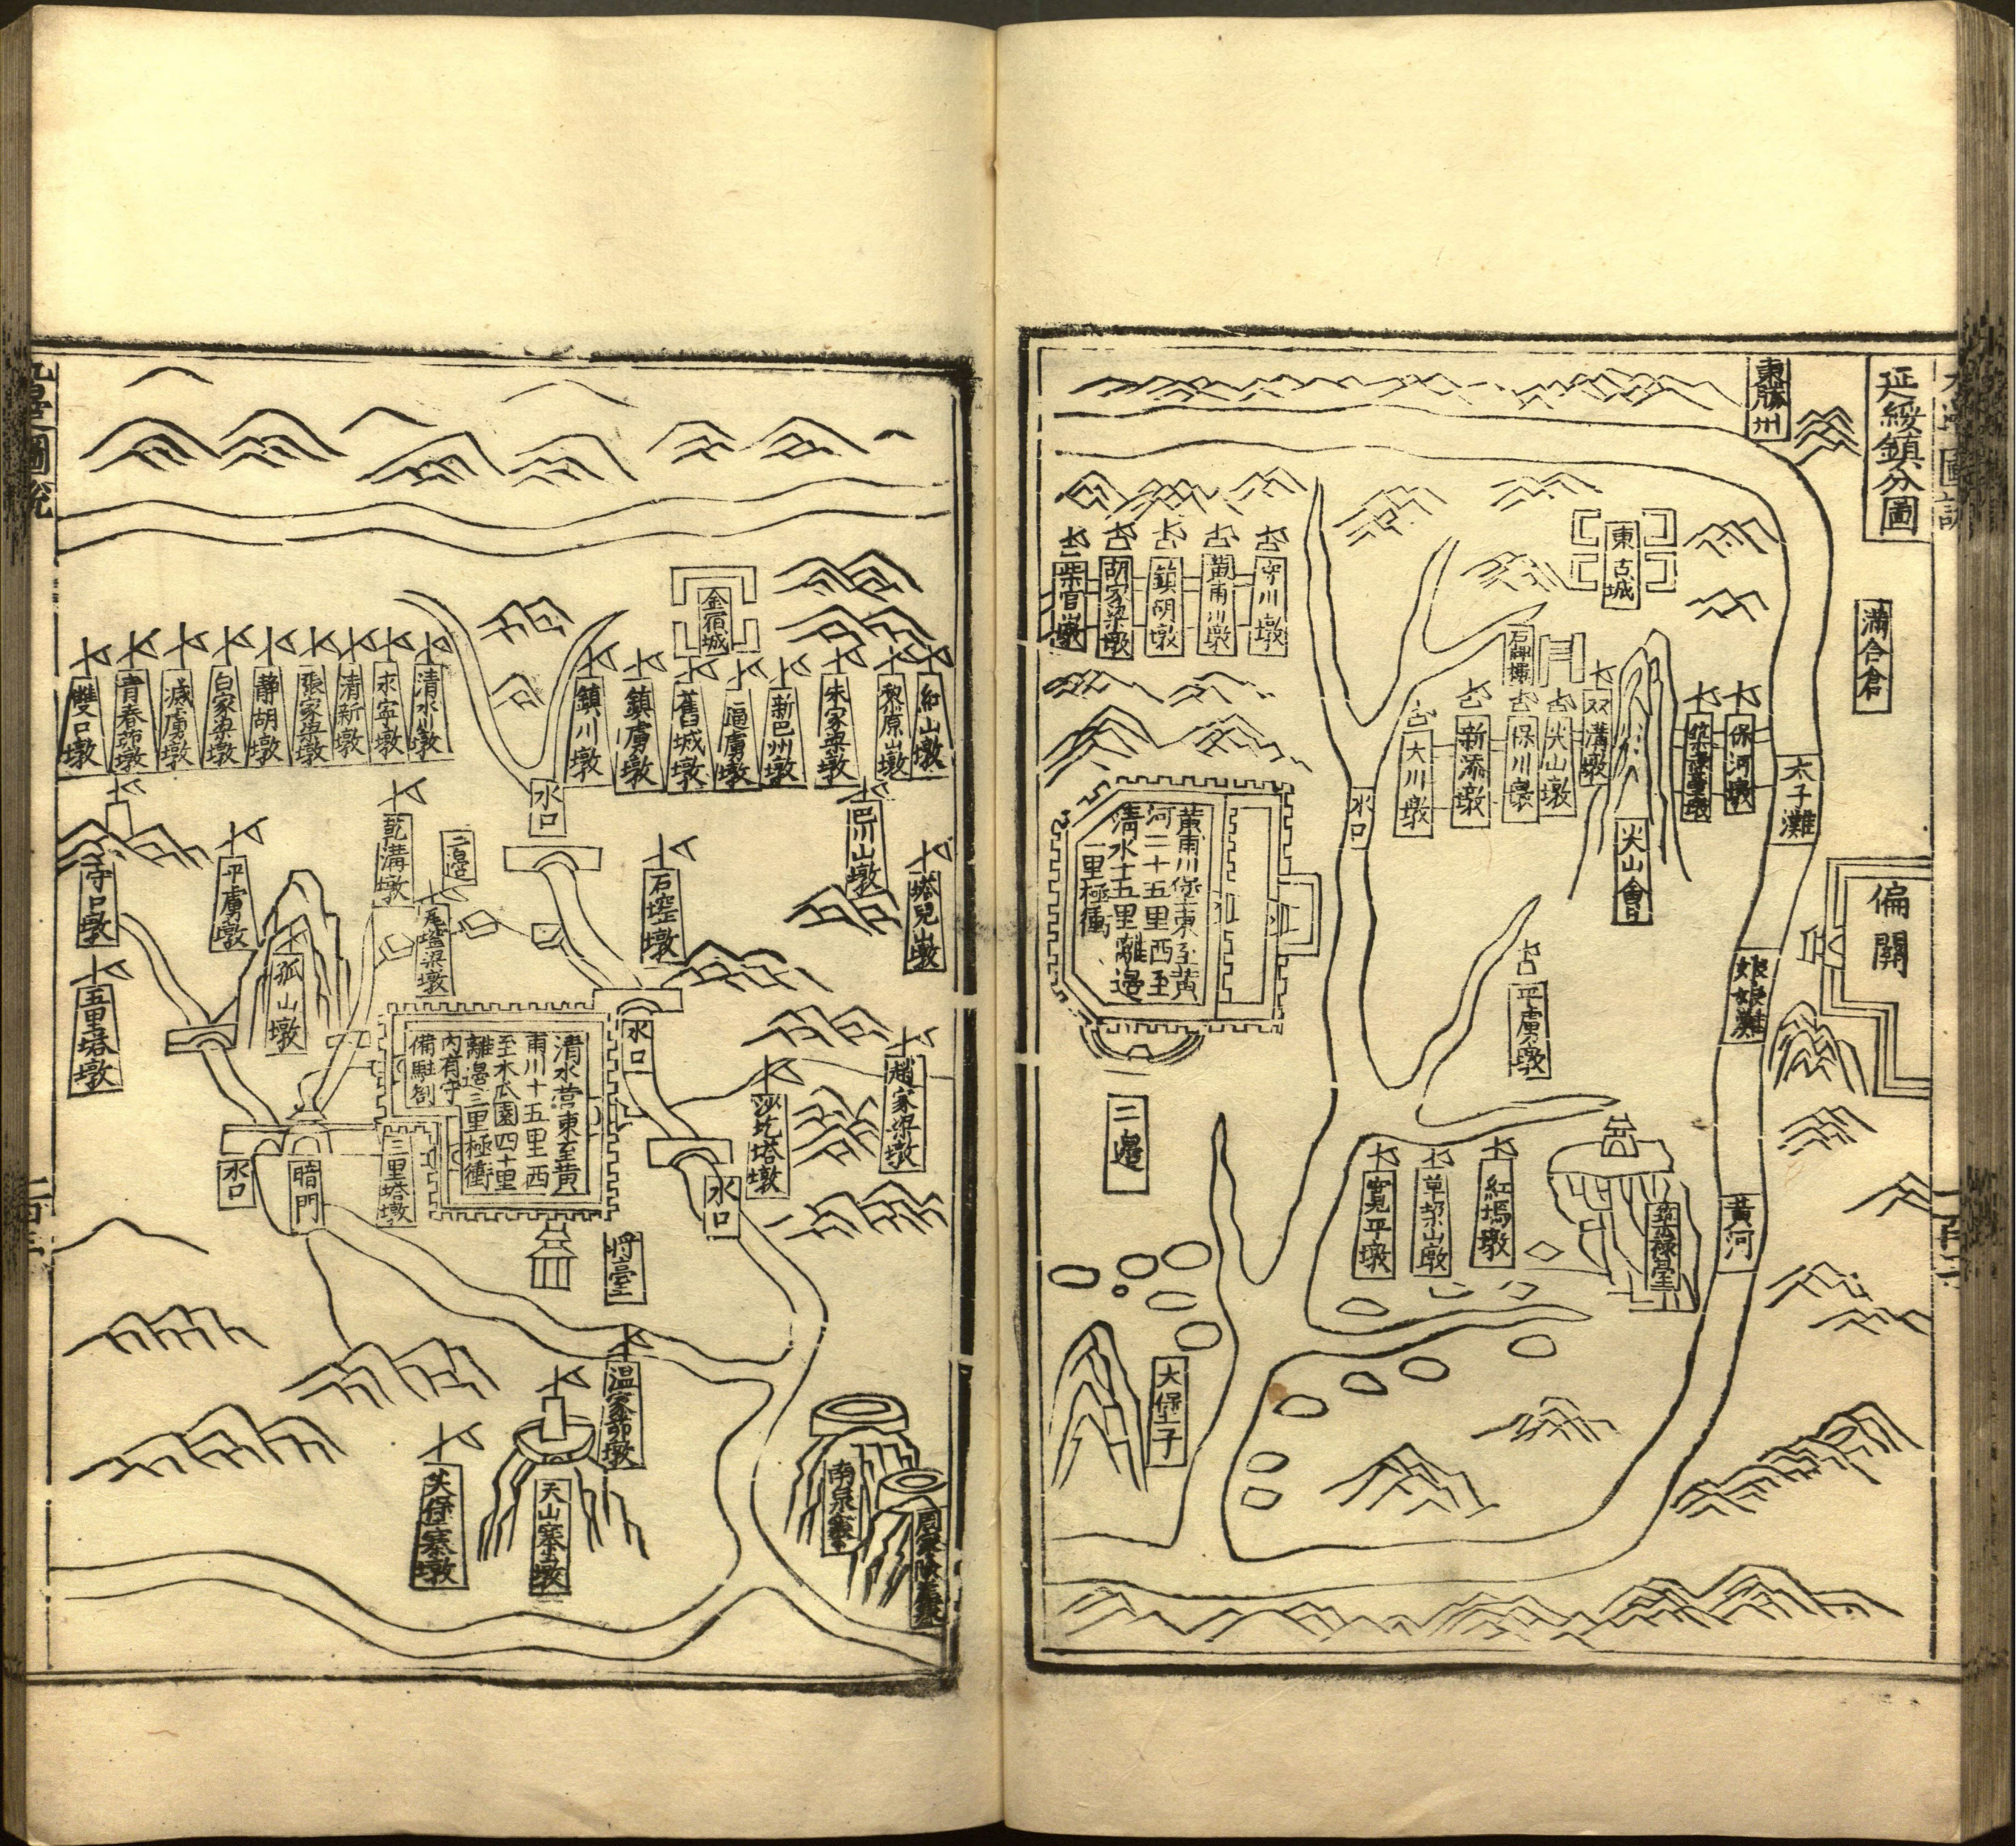 延綏鎮分圖
東勝州
滿合倉
偏關
太子灘
娘娘灘
黃河
東古城
保河墩
火山會
双溝墩
火山墩
保川墩
新添墩
大川墩
水口
平虜墩
紅塢墩
寬平墩
守川墩
黃甫川墩
鎮胡墩
胡家梁墩
黃甫川堡東至黃
河二十五里西至
清水十五里離邊
一里極衝
二邊
大堡子
金宿城
紅山墩
黎原山墩
朱家梁墩
新巴州墩
逼虜墩
舊城墩
鎮虜墩
鎮川墩
水口
清水川墩
永寧墩
清新墩
張家梁墩
靜胡墩
白家梁墩
滅虜墩
青春峁墩
雙口墩
塔兒山墩
巴川山墩
石墩
二邊
乾溝墩
平虜墩
守口墩
孤山墩
五里塔墩
趙家梁墩
沙圪塔墩
水口
水口
清水營東至黃
甫川十五里西
至木瓜園四十里
離邊三里極衝
內有守
備駐劄
三里塔墩
暗門
水口
將臺
溫家峁墩
天山寨墩
九邊圖說